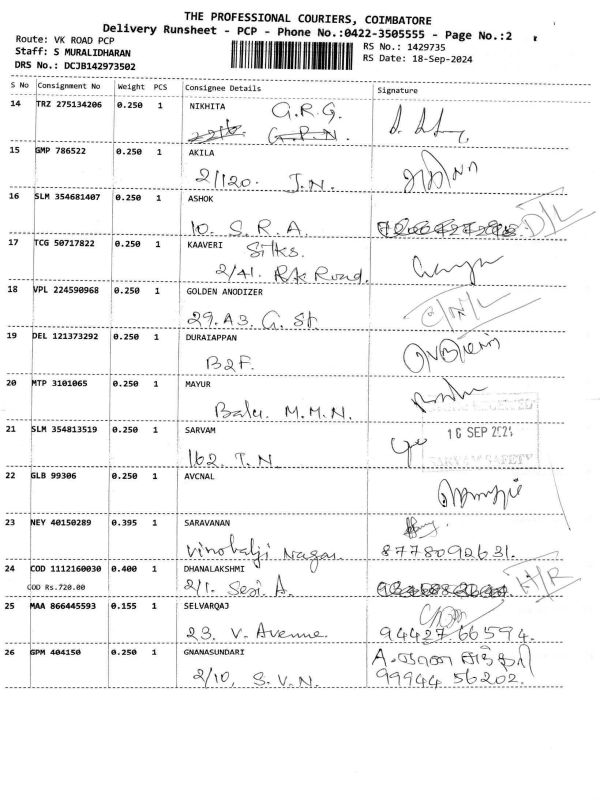 THE PROFESSIONAL COURIERS, COIMBATORE
Delivery Runsheet - PCP - Phone No.:0422-3505555 - Page No.:2
Route: VK ROAD PCP
Staff: S MURALIDHARAN
DRS No.: DCJB142973502
RS No.: 1429735
RS Date: 18-Sep-2024
S No Consignment No Weight PCS Consignee Details Signature
14 TRZ 275134206 0.250 1 NIKHITA G.R.G.
G.R.N.
15 GMP 786522 0.250 1 AKILA
2/120. J.N.
16 SLM 354681407 0.250 1 ASHOK
10. S.R.A. D/L
17 TCG 50717822 0.250 1 KAAVERI Silks.
2/41. R.K. Road.
18 VPL 224590968 0.250 1 GOLDEN ANODIZER
29. A3. G. St. C/N/L
19 DEL 121373292 0.250 1 DURAIAPPAN
B2F.
20 MTP 3101065 0.250 1 MAYUR
Balu. M.M.N.
21 SLM 354813519 0.250 1 SARVAM 16 SEP 2024
162. T.N. SARVAM SAFETY
22 GLB 99306 0.250 1 AVCNAL
23 NEY 40150289 0.395 1 SARAVANAN
Vinobalji Nagar. 8778092631.
24 COD 1112160030 0.400 1 DHANALAKSHMI
COD Rs.720.00 2/1. Sesi A. H/R
25 MAA 866445593 0.155 1 SELVARQAJ
23. V. Avenue. 94427 66594.
26 GPM 404150 0.250 1 GNANASUNDARI
2/10, S.V.N. 99944 56202.